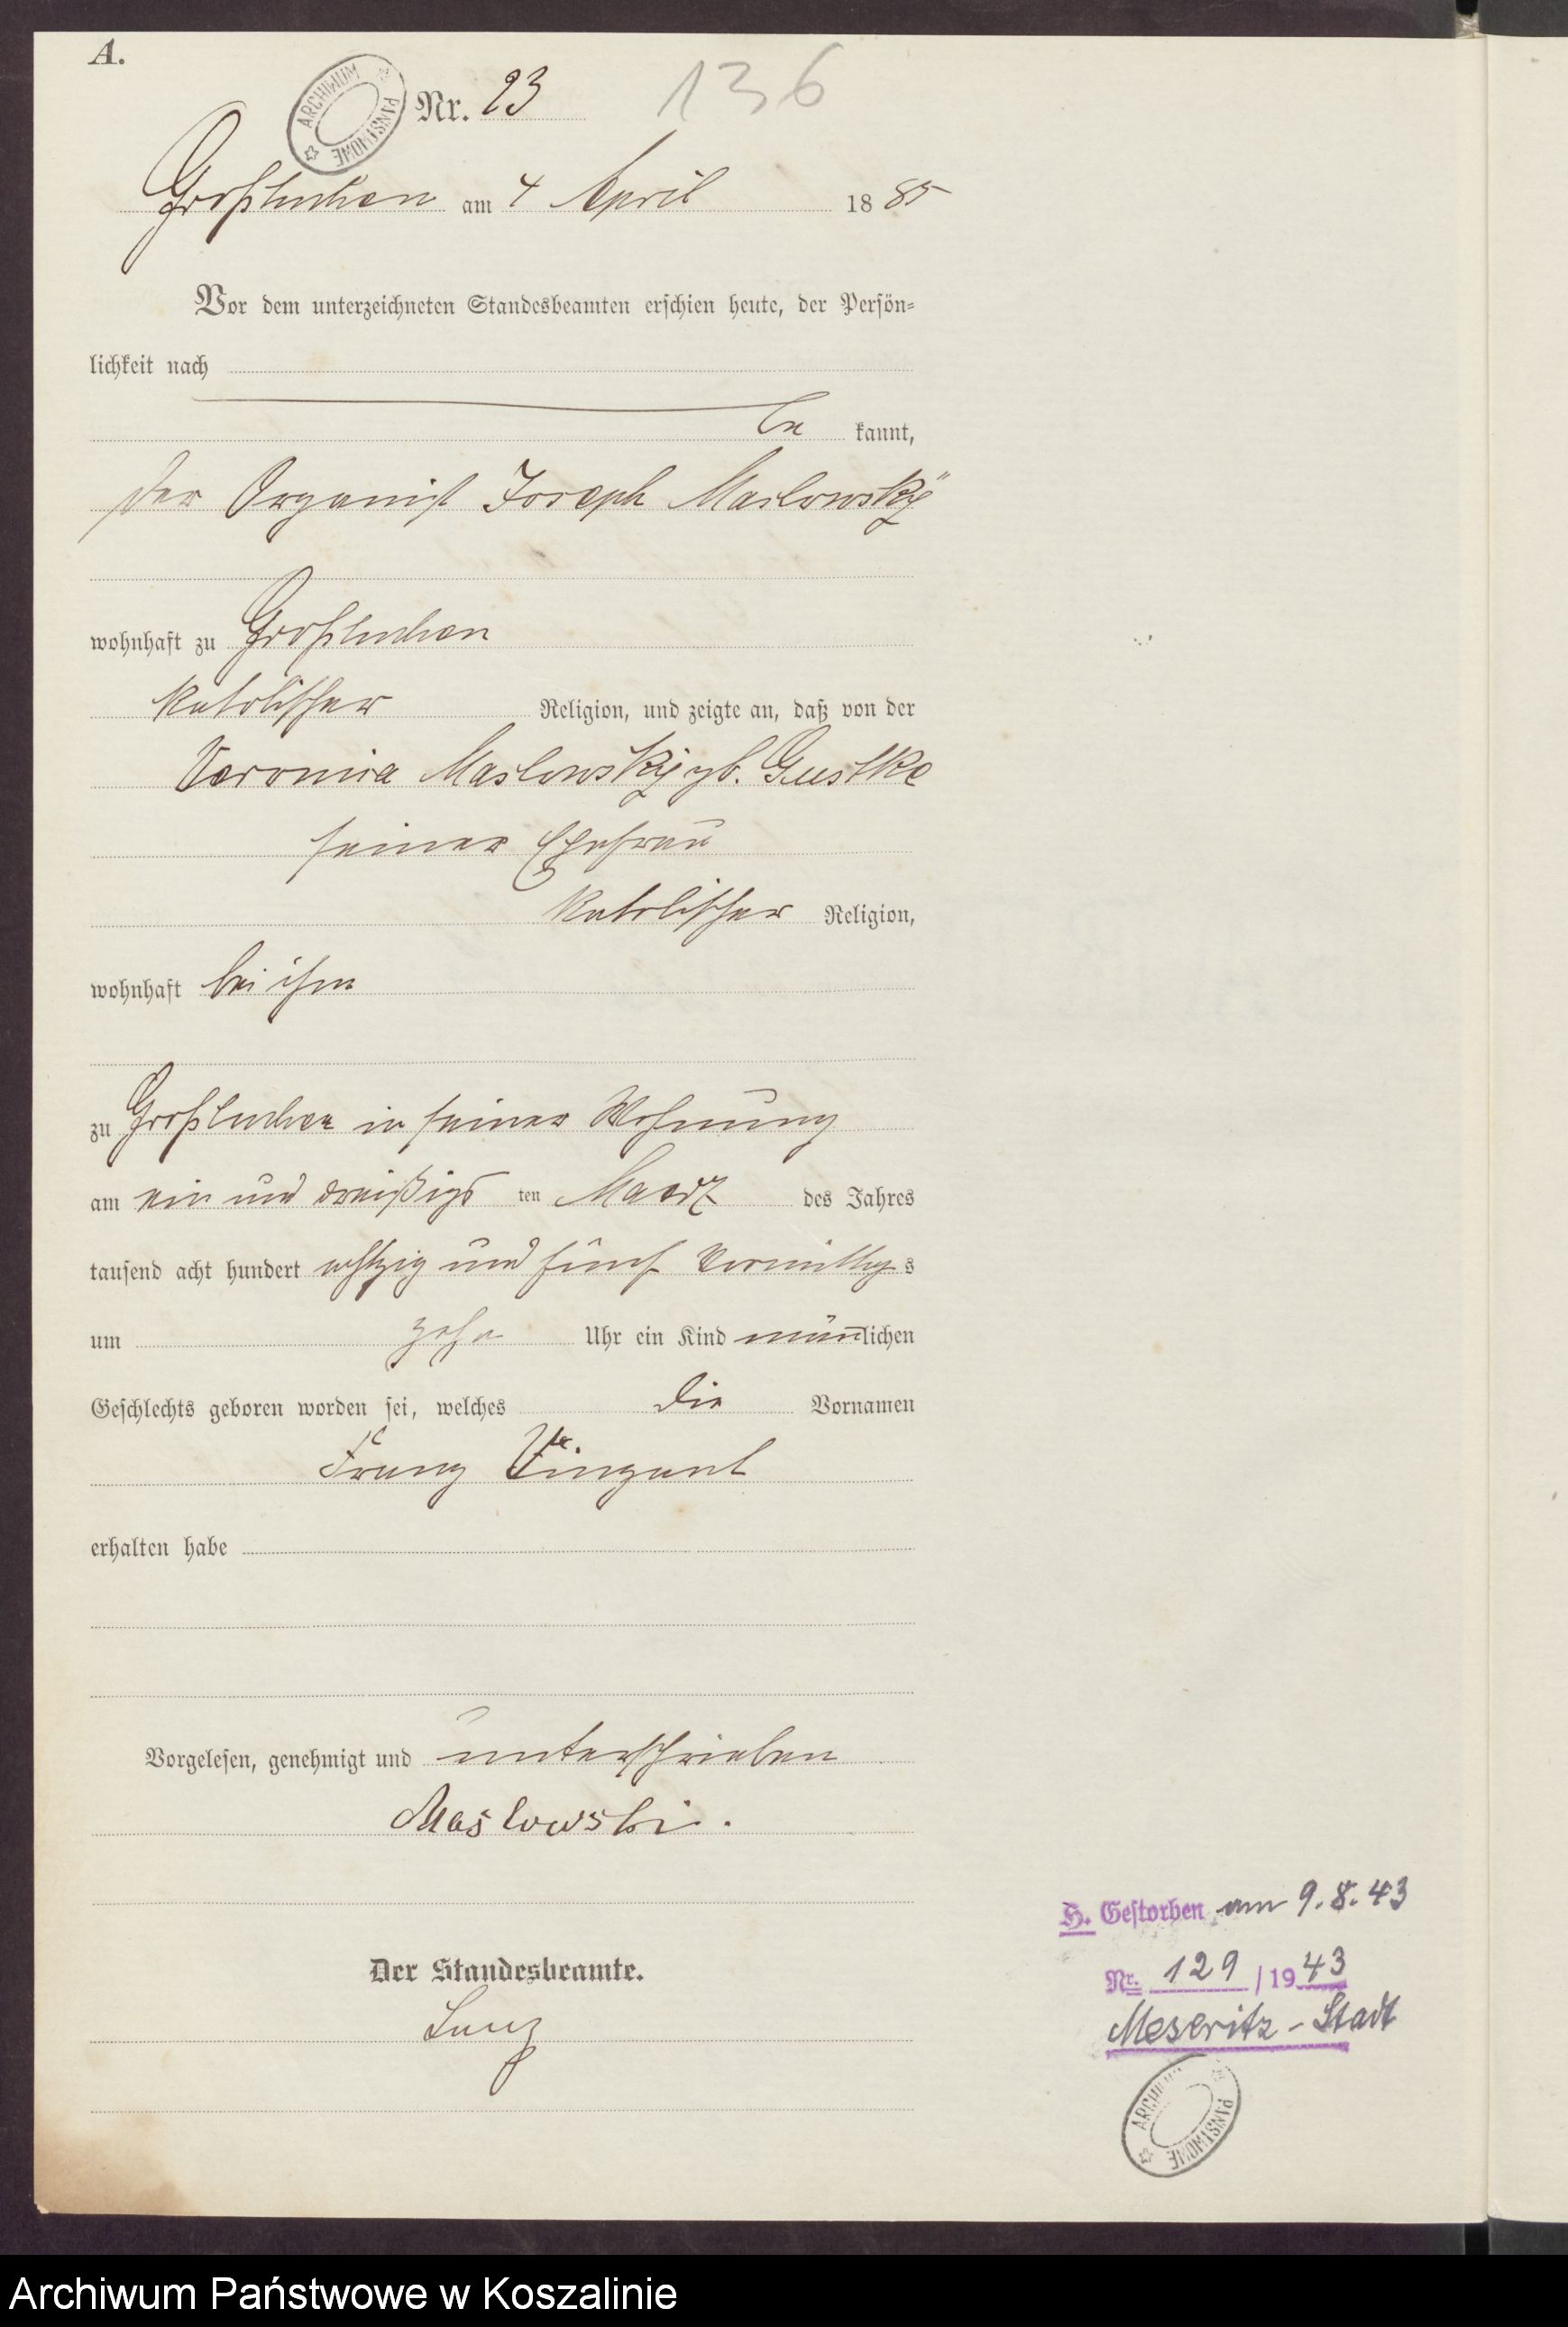 A.
ARCHIWUM PAŃSTWOWE
Nr. 23
136
Großtuchen am 4 April 1885
Vor dem unterzeichneten Standesbeamten erschien heute, der Persön-
lichkeit nach
be kannt,
der Organist Joseph Maslowsky
wohnhaft zu Großtuchen
katolischer Religion, und zeigte an, daß von der
Veronica Maslowsky gb. Gustke
seiner Ehefrau
katolischer Religion,
wohnhaft bei ihm
zu Großtuchen in seiner Wohnung
am ein und dreißigs ten Maerz des Jahres
tausend acht hundert achtzig und fünf Vormittags
um zehn Uhr ein Kind männlichen
Geschlechts geboren worden sei, welches die Vornamen
Franz Vinzent
erhalten habe
Vorgelesen, genehmigt und unterschrieben
Maslowski.
Der Standesbeamte.
H. Gestorben am 9.8.43
Nr. 129 / 19 43
Meseritz - Stadt
ARCHIWUM PAŃSTWOWE
Archiwum Państwowe w Koszalinie